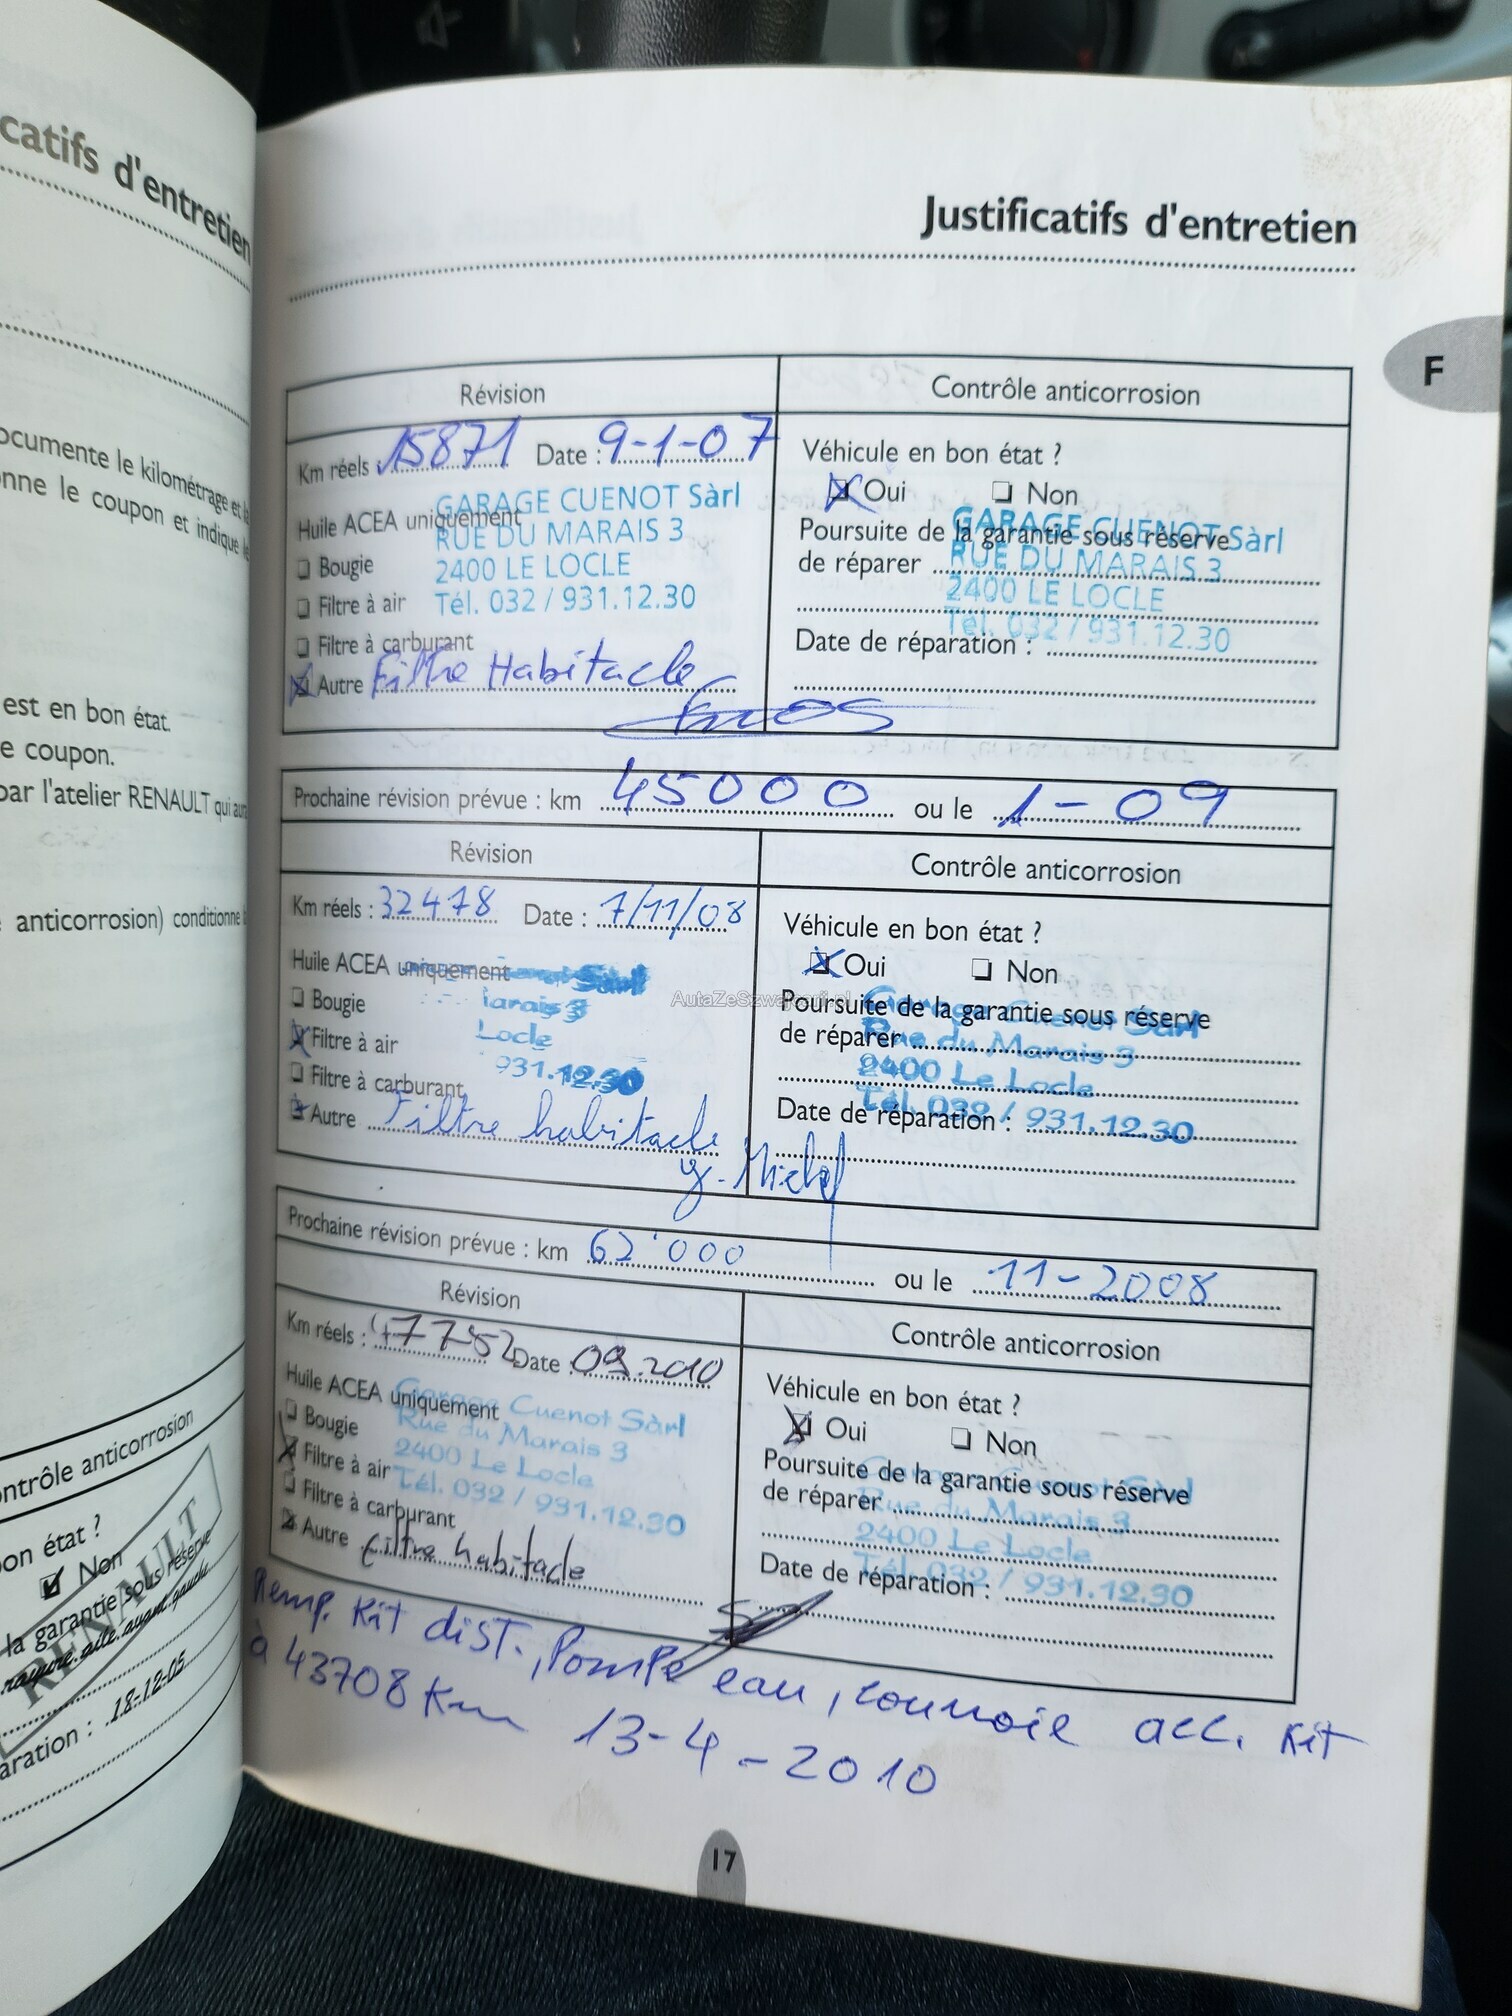 catifs d'entretien
ocumente le kilométrage et
nne le coupon et indique
est en bon état.
e coupon.
par l'atelier RENAULT qui
anticorrosion) conditionne
ntrôle anticorrosion
on état ?
Non
la garantie sous réserve
rayure aile avant gauche
RENAULT
aration : 18-12-05
Justificatifs d'entretien
F
Révision
Contrôle anticorrosion
Km réels : 15871 Date : 9-1-07
Véhicule en bon état ?
Oui Non
Huile ACEA uniquement
GARAGE CUENOT Sàrl
RUE DU MARAIS 3
2400 LE LOCLE
Tél. 032 / 931.12.30
Bougie
Filtre à air
Filtre à carburant
Autre Filtre Habitacle
Poursuite de la garantie sous réserve
de réparer
GARAGE CUENOT Sàrl
RUE DU MARAIS 3
2400 LE LOCLE
Tél. 032 / 931.12.30
Date de réparation :
Prochaine révision prévue : km 45000 ou le 1-09
Révision
Contrôle anticorrosion
Km réels : 32478 Date : 7/11/08
Véhicule en bon état ?
Oui Non
Huile ACEA uniquement
Sàrl
arais 3
Locle
931.12.30
Bougie
Filtre à air
Filtre à carburant
Autre Filtre habitacle
AutaZeSzwajcarii.pl
Poursuite de la garantie sous réserve
de réparer
Garage Cuenot Sàrl
Rue du Marais 3
2400 Le Locle
Tél. 032 / 931.12.30
Date de réparation :
y. Michel
Prochaine révision prévue : km 62'000 ou le 11-2008
Révision
Contrôle anticorrosion
Km réels : 47752 Date 09.2010
Véhicule en bon état ?
Oui Non
Huile ACEA uniquement
Garage Cuenot Sàrl
Rue du Marais 3
2400 Le Locle
Tél. 032 / 931.12.30
Bougie
Filtre à air
Filtre à carburant
Autre filtre habitacle
Poursuite de la garantie sous réserve
de réparer
Garage Cuenot Sàrl
Rue du Marais 3
2400 Le Locle
Tél. 032 / 931.12.30
Date de réparation :
Remp. Kit dist., Pompe eau, courroie acc. Kit
à 43708 Km 13-4-2010
17